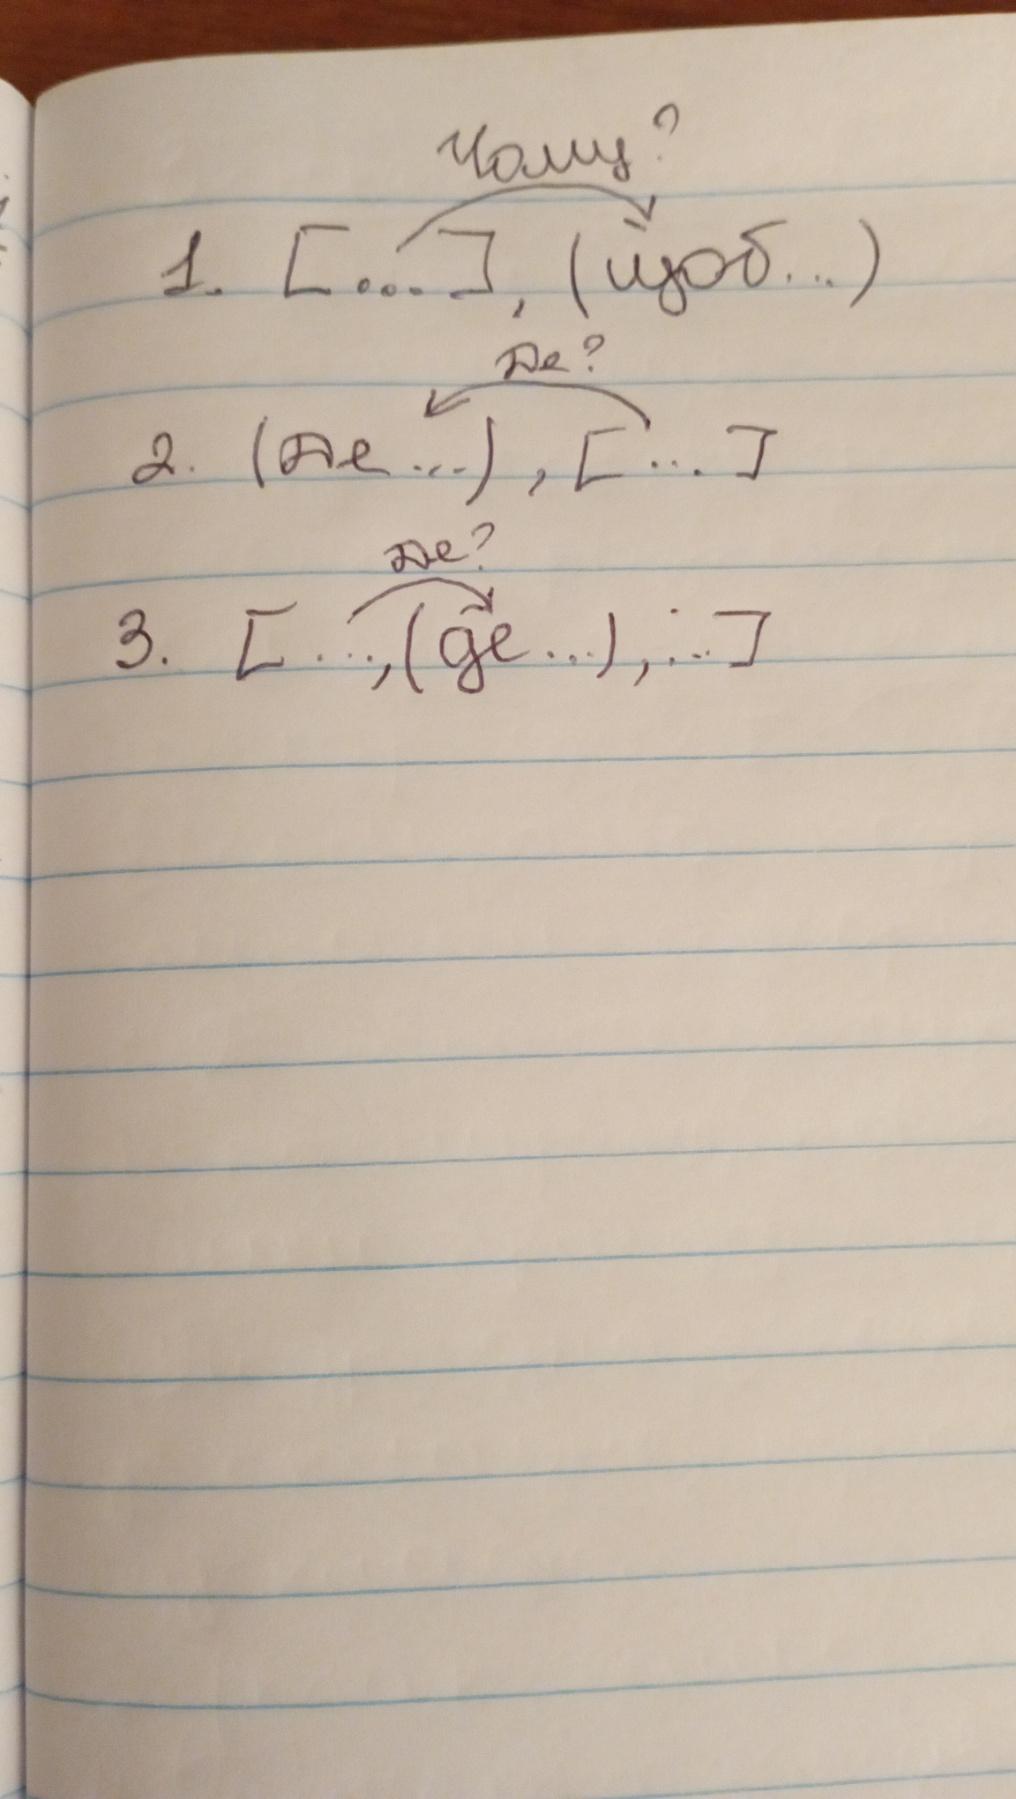 Чому?
1. [...], (щоб...)
Де?
2. (Де...), [...]
Де?
3. [..., (де...), ...]